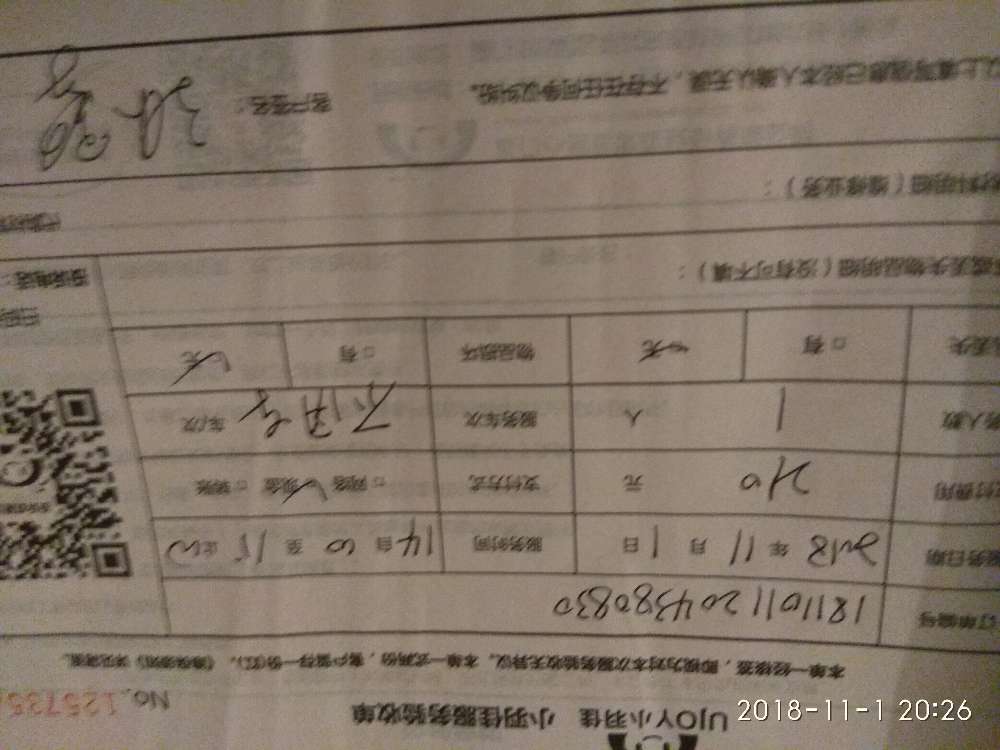 UJOY小羽佳 小羽佳服务验收单
No.125735
本单一经接签,即视为对本次服务验收无异议。本单一式两份,客户留存一份(红),
订单编号 1811011204380830
服务日期 2018 年 11 月 1 日 服务时间 14 自 00 至 15 止 00
支付费用 210 元 支付方式 □网络 ✓现金 □转账
人数 1 人 服务车次 车/次
丢失 □有 ✓无 物品损坏 □有 ✓无
或丢失物品明细(没有可不填):
材料明细(维修业务):
以上填写信息已经本人确认无误,不存在任何争议纠纷。 客户签名:
投诉电话:
2018-11-1 20:26